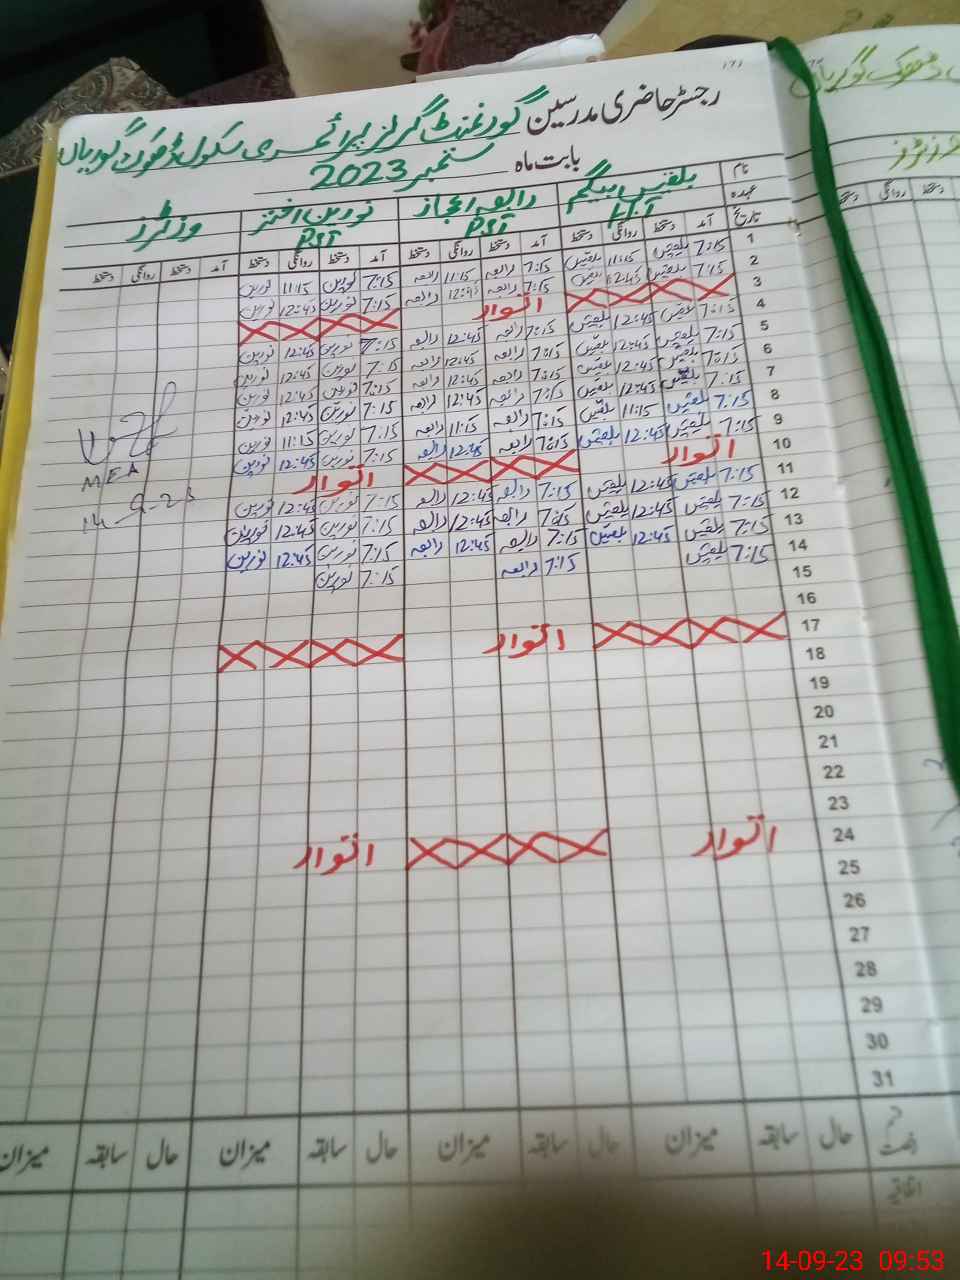 رجسٹر حاضری مدرسین گورنمنٹ گرلز پرائمری سکول ڈھوک گوریاں
بابت ماہ ستمبر 2023
نام بلقیس بیگم رابعہ اعجاز نورین اختر وزٹرز
عہدہ PST PST
تاریخ آمد دستخط روانگی دستخط آمد دستخط روانگی دستخط آمد دستخط روانگی دستخط آمد دستخط روانگی دستخط
1 7:15 بلقیس 11:15 بلقیس 7:15 رابعہ 11:15 رابعہ 7:15 نورین 11:15 نورین
2 7:15 بلقیس 12:45 بلقیس 7:15 رابعہ 12:45 رابعہ 7:15 نورین 12:45 نورین
3 اتوار
4 7:15 بلقیس 12:45 بلقیس 7:15 رابعہ 12:45 رابعہ 7:15 نورین 12:45 نورین
5 7:15 بلقیس 12:45 بلقیس 7:15 رابعہ 12:45 رابعہ 7:15 نورین 12:45 نورین
6 7:15 بلقیس 12:45 بلقیس 7:15 رابعہ 12:45 رابعہ 7:15 نورین 12:45 نورین
7 7:15 بلقیس 12:45 بلقیس 7:15 رابعہ 12:45 رابعہ 7:15 نورین 12:45 نورین
8 7:15 بلقیس 11:15 بلقیس 7:15 رابعہ 11:15 رابعہ 7:15 نورین 11:15 نورین
9 7:15 بلقیس 12:45 بلقیس 7:15 رابعہ 12:45 رابعہ 7:15 نورین 12:45 نورین
10 اتوار اتوار
11 7:15 بلقیس 12:45 بلقیس 7:15 رابعہ 12:45 رابعہ 7:15 نورین 12:45 نورین
12 7:15 بلقیس 12:45 بلقیس 7:15 رابعہ 12:45 رابعہ 7:15 نورین 12:45 نورین
13 7:15 بلقیس 12:45 بلقیس 7:15 رابعہ 12:45 رابعہ 7:15 نورین 12:45 نورین
14 7:15 بلقیس 7:15 رابعہ 7:15 نورین
MEA
14-9-23
15
16
17 اتوار
18
19
20
21
22
23
24 اتوار اتوار
25
26
27
28
29
30
31
حال سابقہ میزان حال سابقہ میزان حال سابقہ میزان حال سابقہ میزان
اتفاقیہ
14-09-23 09:53